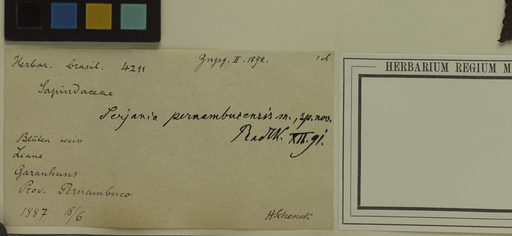 Herbar. brasil. 4211
Zngeg. II. 1892.
Sapindaceae
Serjania pernambucensis m., sp. nov.
Radlk. XII. 91.
Blüten weiss
Liane
Garanhuns
Prov. Pernambuco
1887 18/6
H Schenck
HERBARIUM REGIUM M